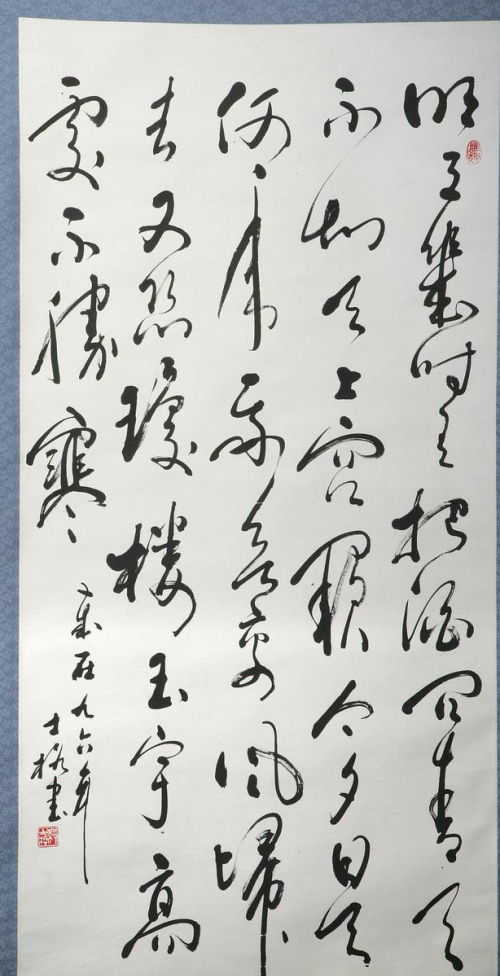 明月幾時有把酒問青天
不知天上宮闕今夕是
何年我欲乘風歸
去又恐瓊樓玉宇高
處不勝寒
歲在九六年
士書